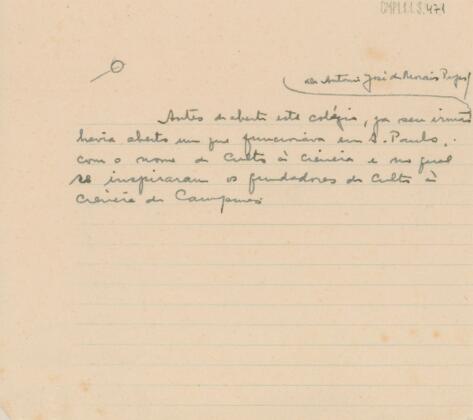 CMP1.1.8.471
de Antonio José de Morais Pupo
Antes de aberto este colégio, ja seu irmão
havia aberto um que funcionava em S. Paulo,
com o nome de Culto à Ciencia e no qual
se inspiraram os fundadores do Culto à
Ciência de Campinas